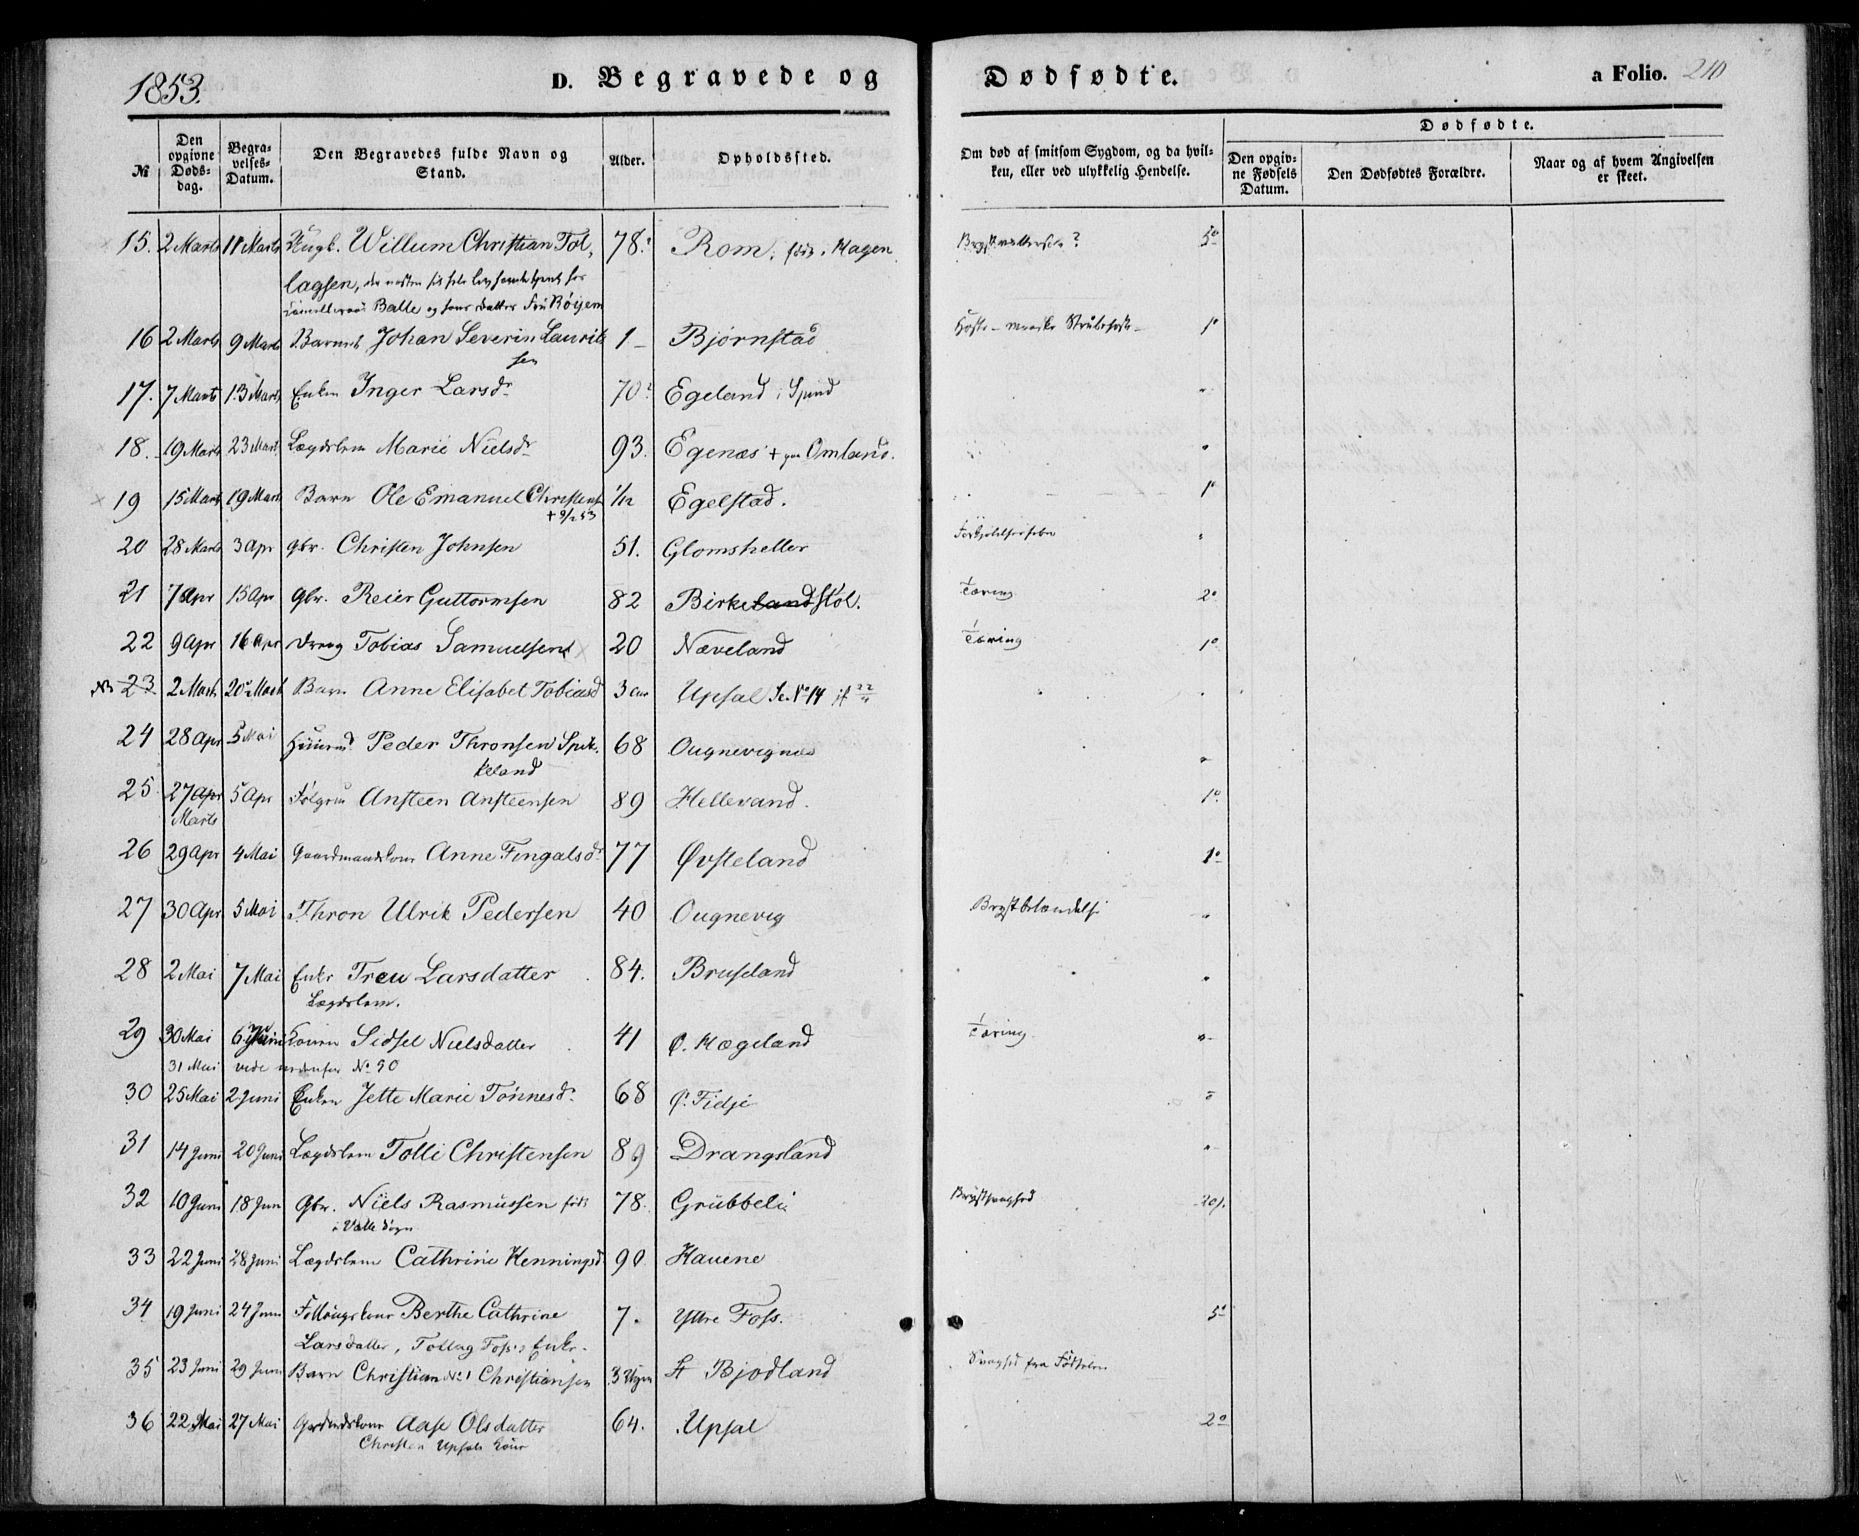 1853. D. Begravede og Dødfødte. a Folio. 210
№ Den opgivne Døds-dag. Begra-velses-Datum. Den Begravedes fulde Navn og Stand. Alder. Opholdssted. Om død af smitsom Sygdom, og da hvil-ken, eller ved ulykkelig Hendelse. Dødfødte. Den opgiv-ne Fødsels Datum. Den Dødfødtes Forældre. Naar og af hvem Angivelsen er skeet.
15. 2 Marts 11 Marts Ungk. Willum Christian Tol- 78. Rom, født i Hagen 5º
lagsen, der næsten sit hele Liv
Balle og hans Datter Fru Röyem
16 2 Marts 9 Marts Barnet Johan Severin Laurits 1 Bjørnstad Hoste - maaske Strubehoste 1º
sen
17. 7 Marts 13 Marts Enken Inger Larsdr 70 Egeland i Spind "
18. 19 Marts 23 Marts Lægdslem Marie Nielsdr 93. Egenæs + paa Omland. "
19 15 Marts 19 Marts Barn Ole Emanuel Christens 1/12 Egelstad. 1º
+ 9/2 53
20 28 Marts 3 Apr gbr. Christen Johnsen 51. Glomsheller Forkjølelsesfeber "
21 7 Apr 15 Apr gbr. Reier Guttormsen 82 Birkelandskol. Tæring 2º
22 9 Apr 16 Apr Dreng Tobias Samuelsen 20 Næveland Tæring 1º
NB 23 2 Marts 20 Marts Barn Anne Elisabet Tobiasd 3 Upsal Se No 14 "
24 28 Apr 5 Mai Huusmd Peder Thronsen Spik- 68 Ougnevignes "
keland
25 27 Apr 5 Apr Følgem Ansteen Ansteensen 89 Hellevand. 1º
Marts
26 29 Apr 4 Mai Gaardmandskone Anne Fingalsdr 77 Øvsteland 1º
27 30 Apr 5 Mai Thron Ulrik Pedersen 40 Ougnevig Brystbetændelse "
28 2 Mai 7 Mai Enke Treu Larsdatter 84. Bruseland "
Lægdslem.
29 30 Mai 6 Juni Konen Sidsel Nielsdatter 41 Ø. Hægeland Tæring "
31 Mai vide nedenfor No 50
30 25 Mai 2 Juni Enken Jette Marie Tønnesdr 68 Ø. Fidje "
31 14 Juni 20 Juni Lægdslem Tolli Christensen 89 Drangsland "
32 10 Juni 18 Juni Gbr. Niels Rasmussen født 78. Grubbeli Brystsvaghed
i Valle Sogn
33 22 Juni 28 Juni Lægdslem Cathrine Henningsd 90 Hauene
34 19 Juni 24 Juni Berthe Cathrine 7. Yttre Foss. 5º
Larsdatter, Tollag Foss's Enke.
35 23 Juni 29 Juni Barn Christian No 1 Christiansen 3 Uger Bjodland Svaghed fra Fødselen
36 22 Mai 27 Mai Gaardmdskone Aase Olsdatter 64. Upsal 2º
Christen Upsals Kone